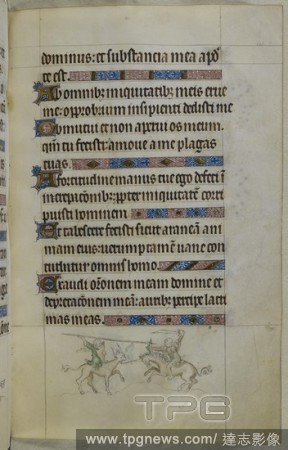 dominus: et substancia mea apd̄
te est.
Ab omnibꝫ iniquitatibꝫ meis erue
me: opprobrium insipienti dedisti me
Obmutui et non aperui os meum.
qm̄ tu fecisti: amove a me plagas
tuas.
A fortitudine manus tue ego defeci ī
increpac̄onibꝫ: pp̄ter iniquitatē corri
puisti hominem
Et tabescere fecisti sicut araneā ani
mam eius: verumptamē vane con
turbatur omnis homo.
Exaudi or̄onem meam domine et
deprecac̄onem meā: auribꝫ percipe lacri
mas meas.
TPG
www.tpgnews.com/達志影像